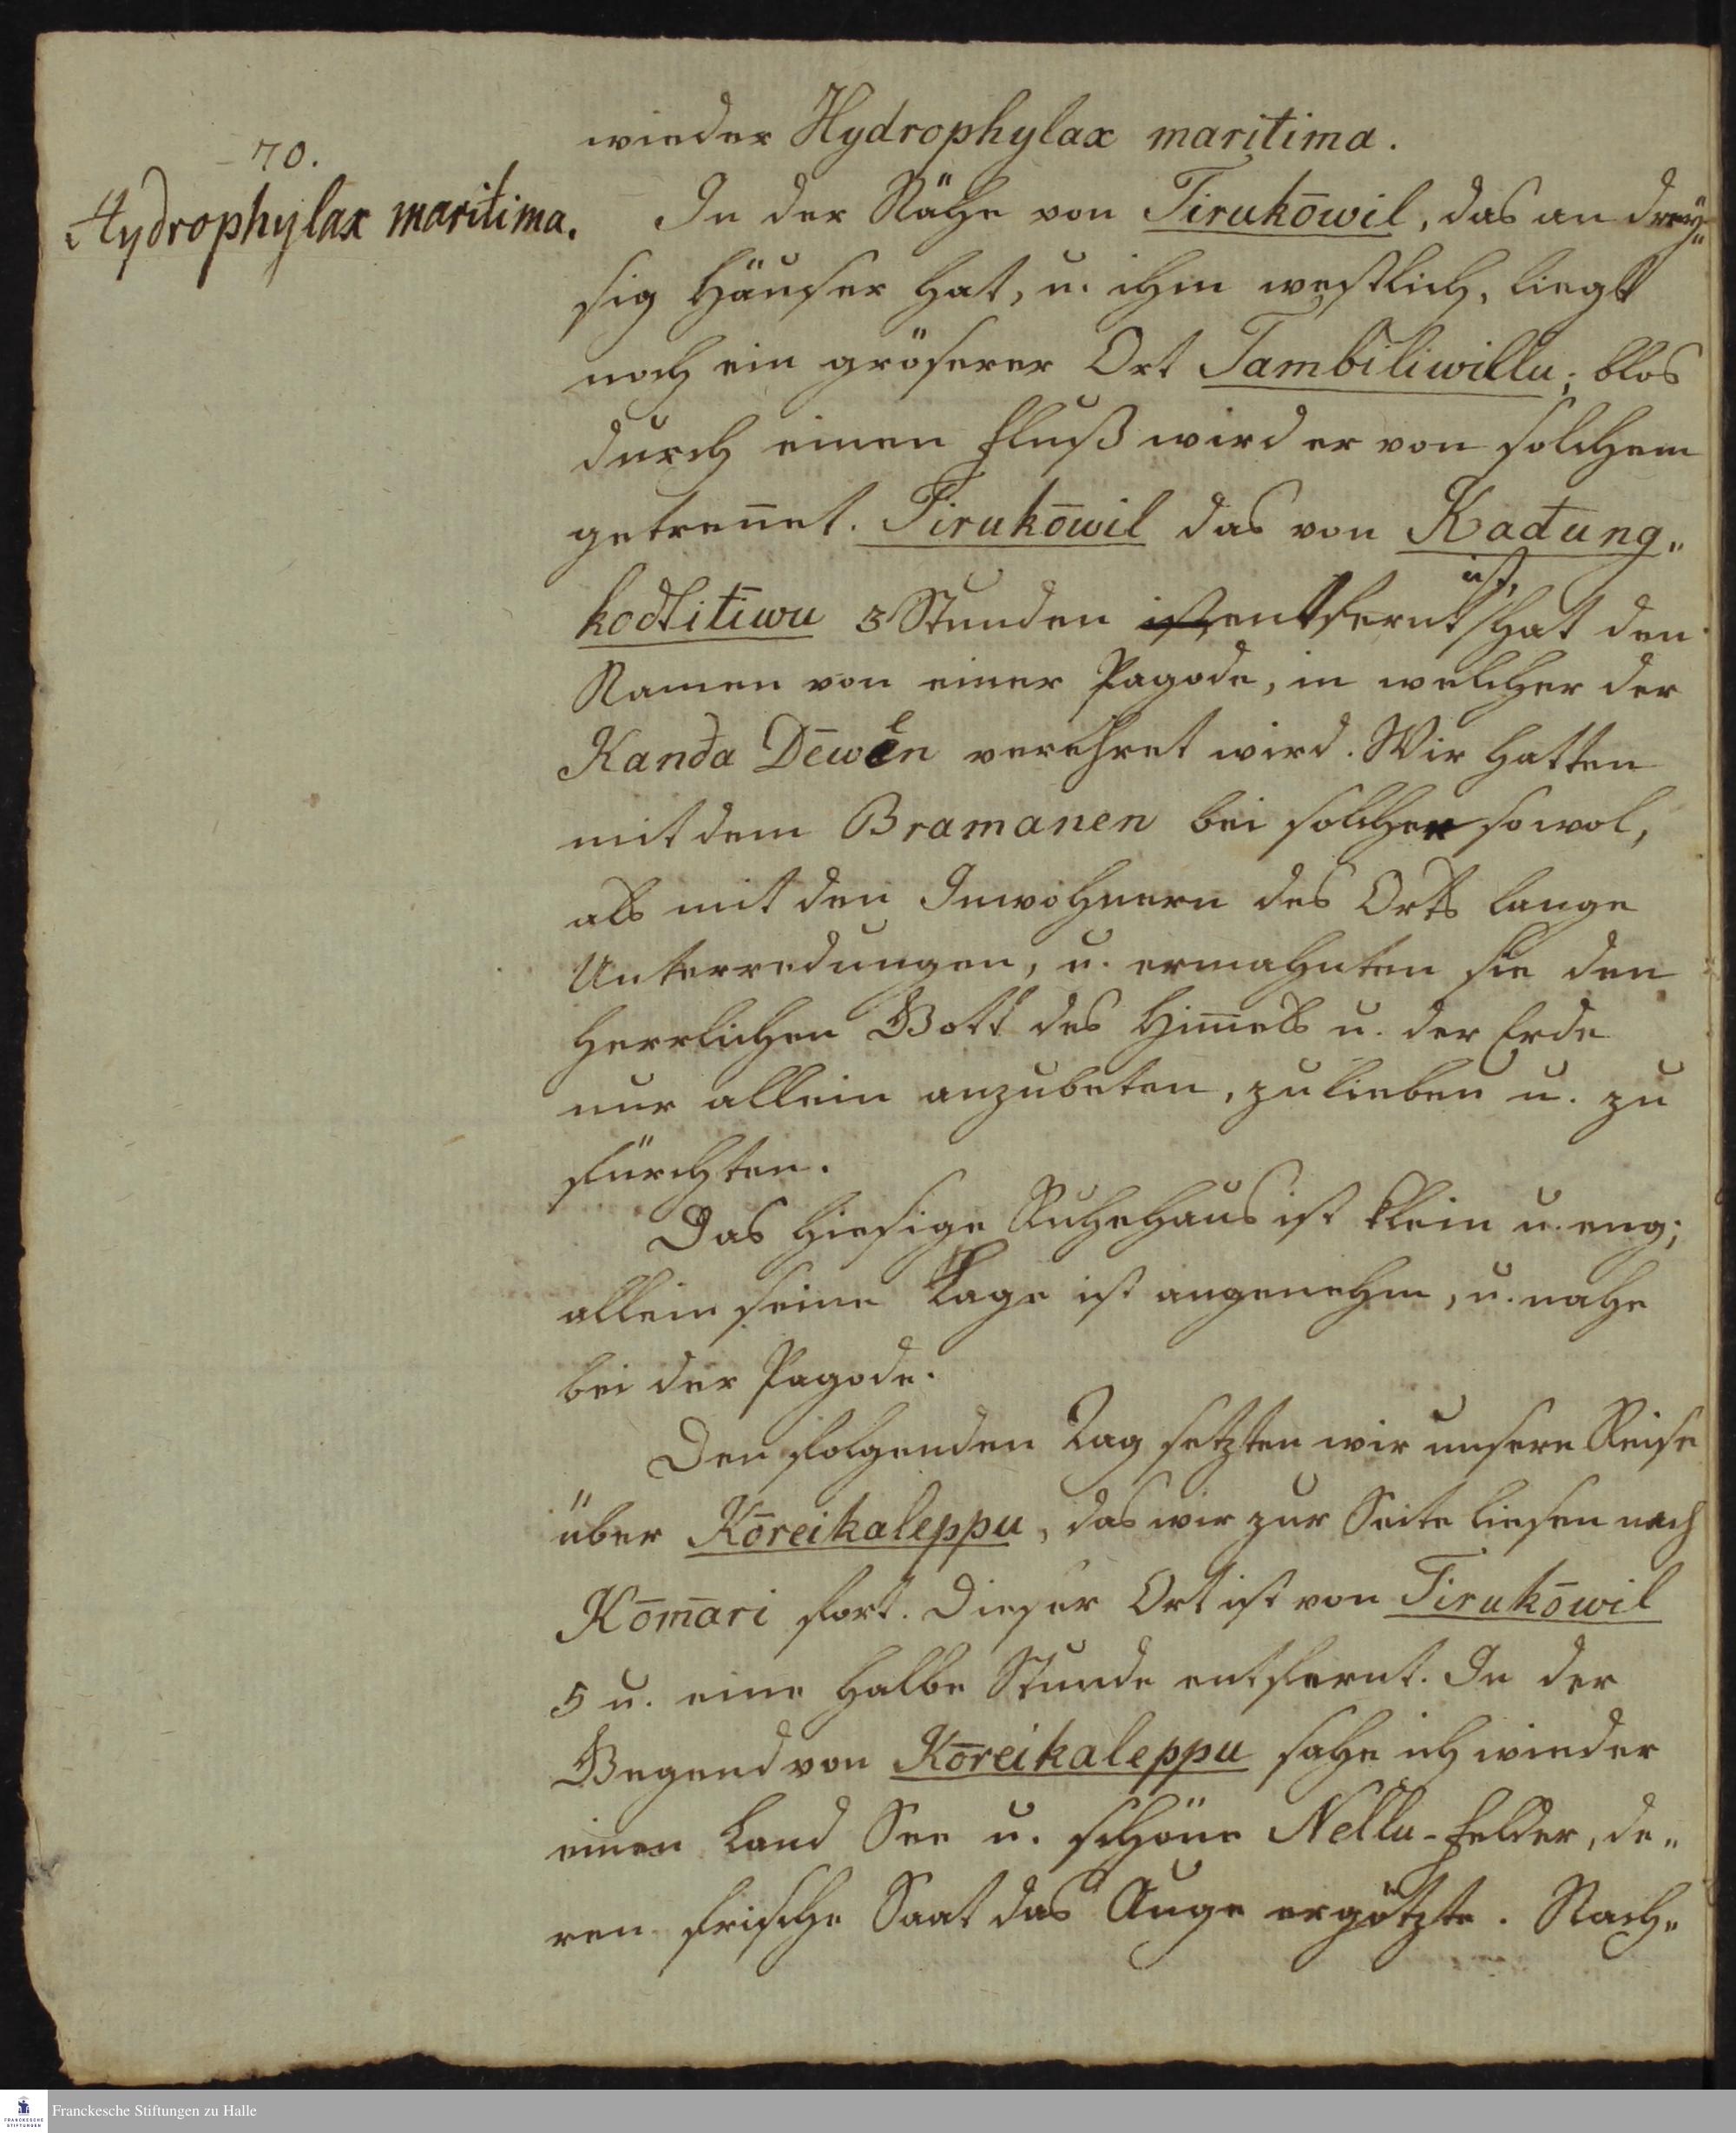 70.
Hydrophylax maritima.
wieder Hydrophylax maritima.
In der Nähe von Tirukōwil, das an drey„
sig Häuser hat, u. ihm westlich, liegt
noch ein gröserer Ort Tambiliwillu; blos
durch einen Fluß wird er von solchem
getren̄et. Tirukōwil das von Kadung„
kodlitīwu 3 Stunden ist entfernt ist, hat den
Namen von einer Pagode, in welcher der
Kanda Dēwen verehret wird. Wir hatten
mit dem Bramanen bei solcher sowol,
als mit den Inwohnern des Orts lange
Unterredungen, u. ermahnten sie den
herrlichen Gott des Him̄els u. der Erde
nur allein anzubeten, zu lieben u. zu
fürchten.
Das hiesige Ruhehaus ist klein u. eng;
allein seine Lage ist angenehm, u. nahe
bei der Pagode.
Den folgenden Tag setzten wir unsere Reise
über Kōreikaleppu, das wir zur Seite liesen nach
Kōmāri fort. Dieser Ort ist von Tirukōwil
5 u. eine halbe Stunde entfernt. In der
Gegend von Kōreikaleppu sahe ich wieder
einen Land See u. schöne Nellu-Felder, de„
ren frische Saat das Auge ergötzte. Nach„
Franckesche Stiftungen zu Halle
FRANCKESCHE
STIFTUNGEN